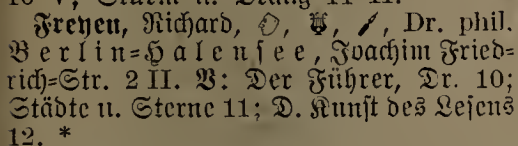 Freyen, Richard, Dr. phil.
Berlin=Halensee, Joachim Fried=
rich=Str. 2 II. V: Der Führer, Dr. 10;
Städte u. Sterne 11; D. Kunst des Lesens
12. *